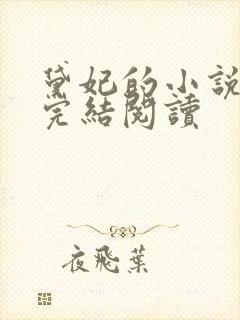 黛妃的小說
完結閱讀
夜飛葉